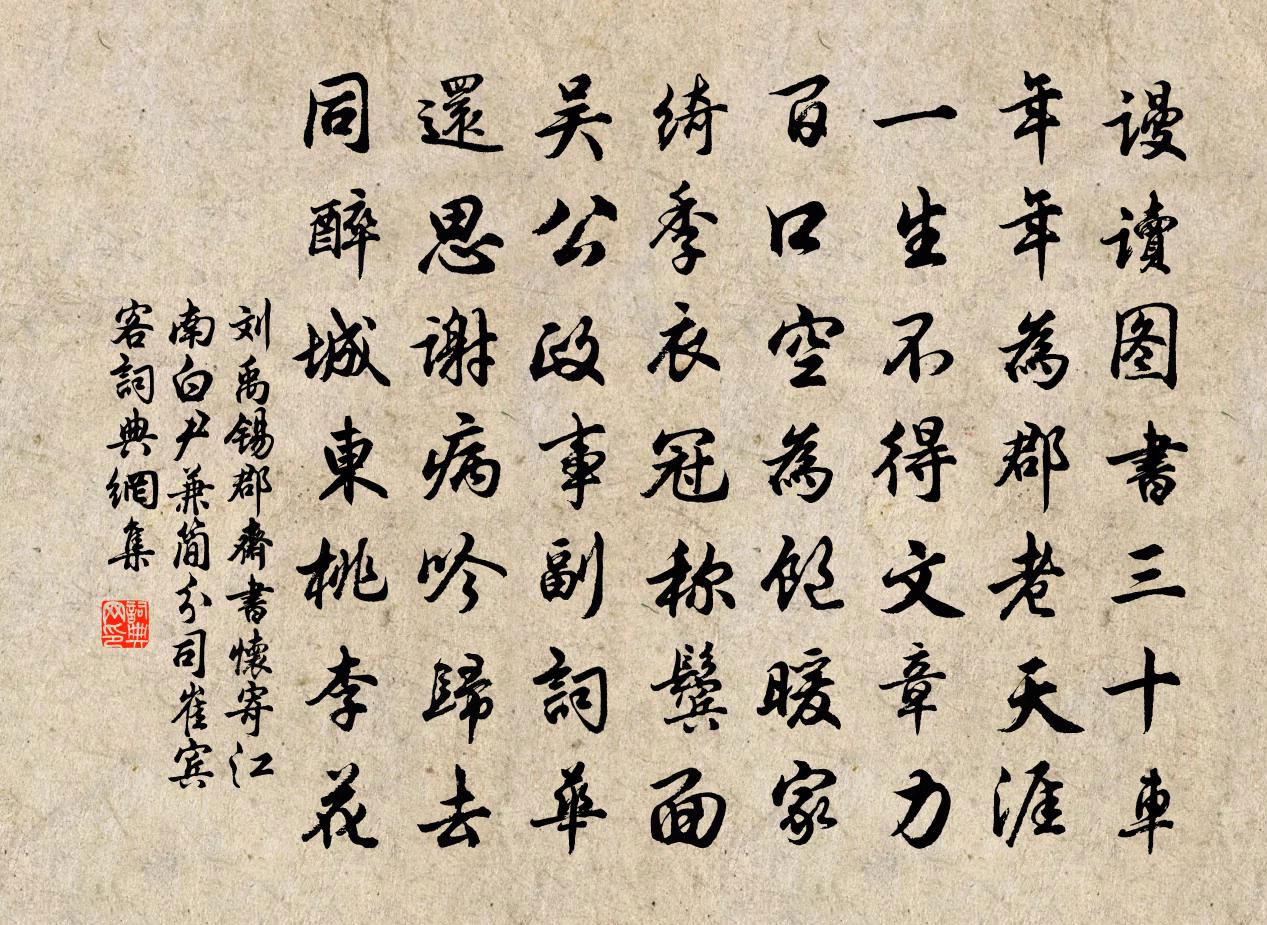 謾讀图書三十車
年年為郡老天涯
一生不得文章力
百口空為飽暖家
綺季衣冠称鬓面
吴公政事副詞華
還思謝病吟歸去
同醉城東桃李花
刘禹锡郡斋書懷寄江
南白尹兼简分司崔宾
客詞典網集
詞典网印